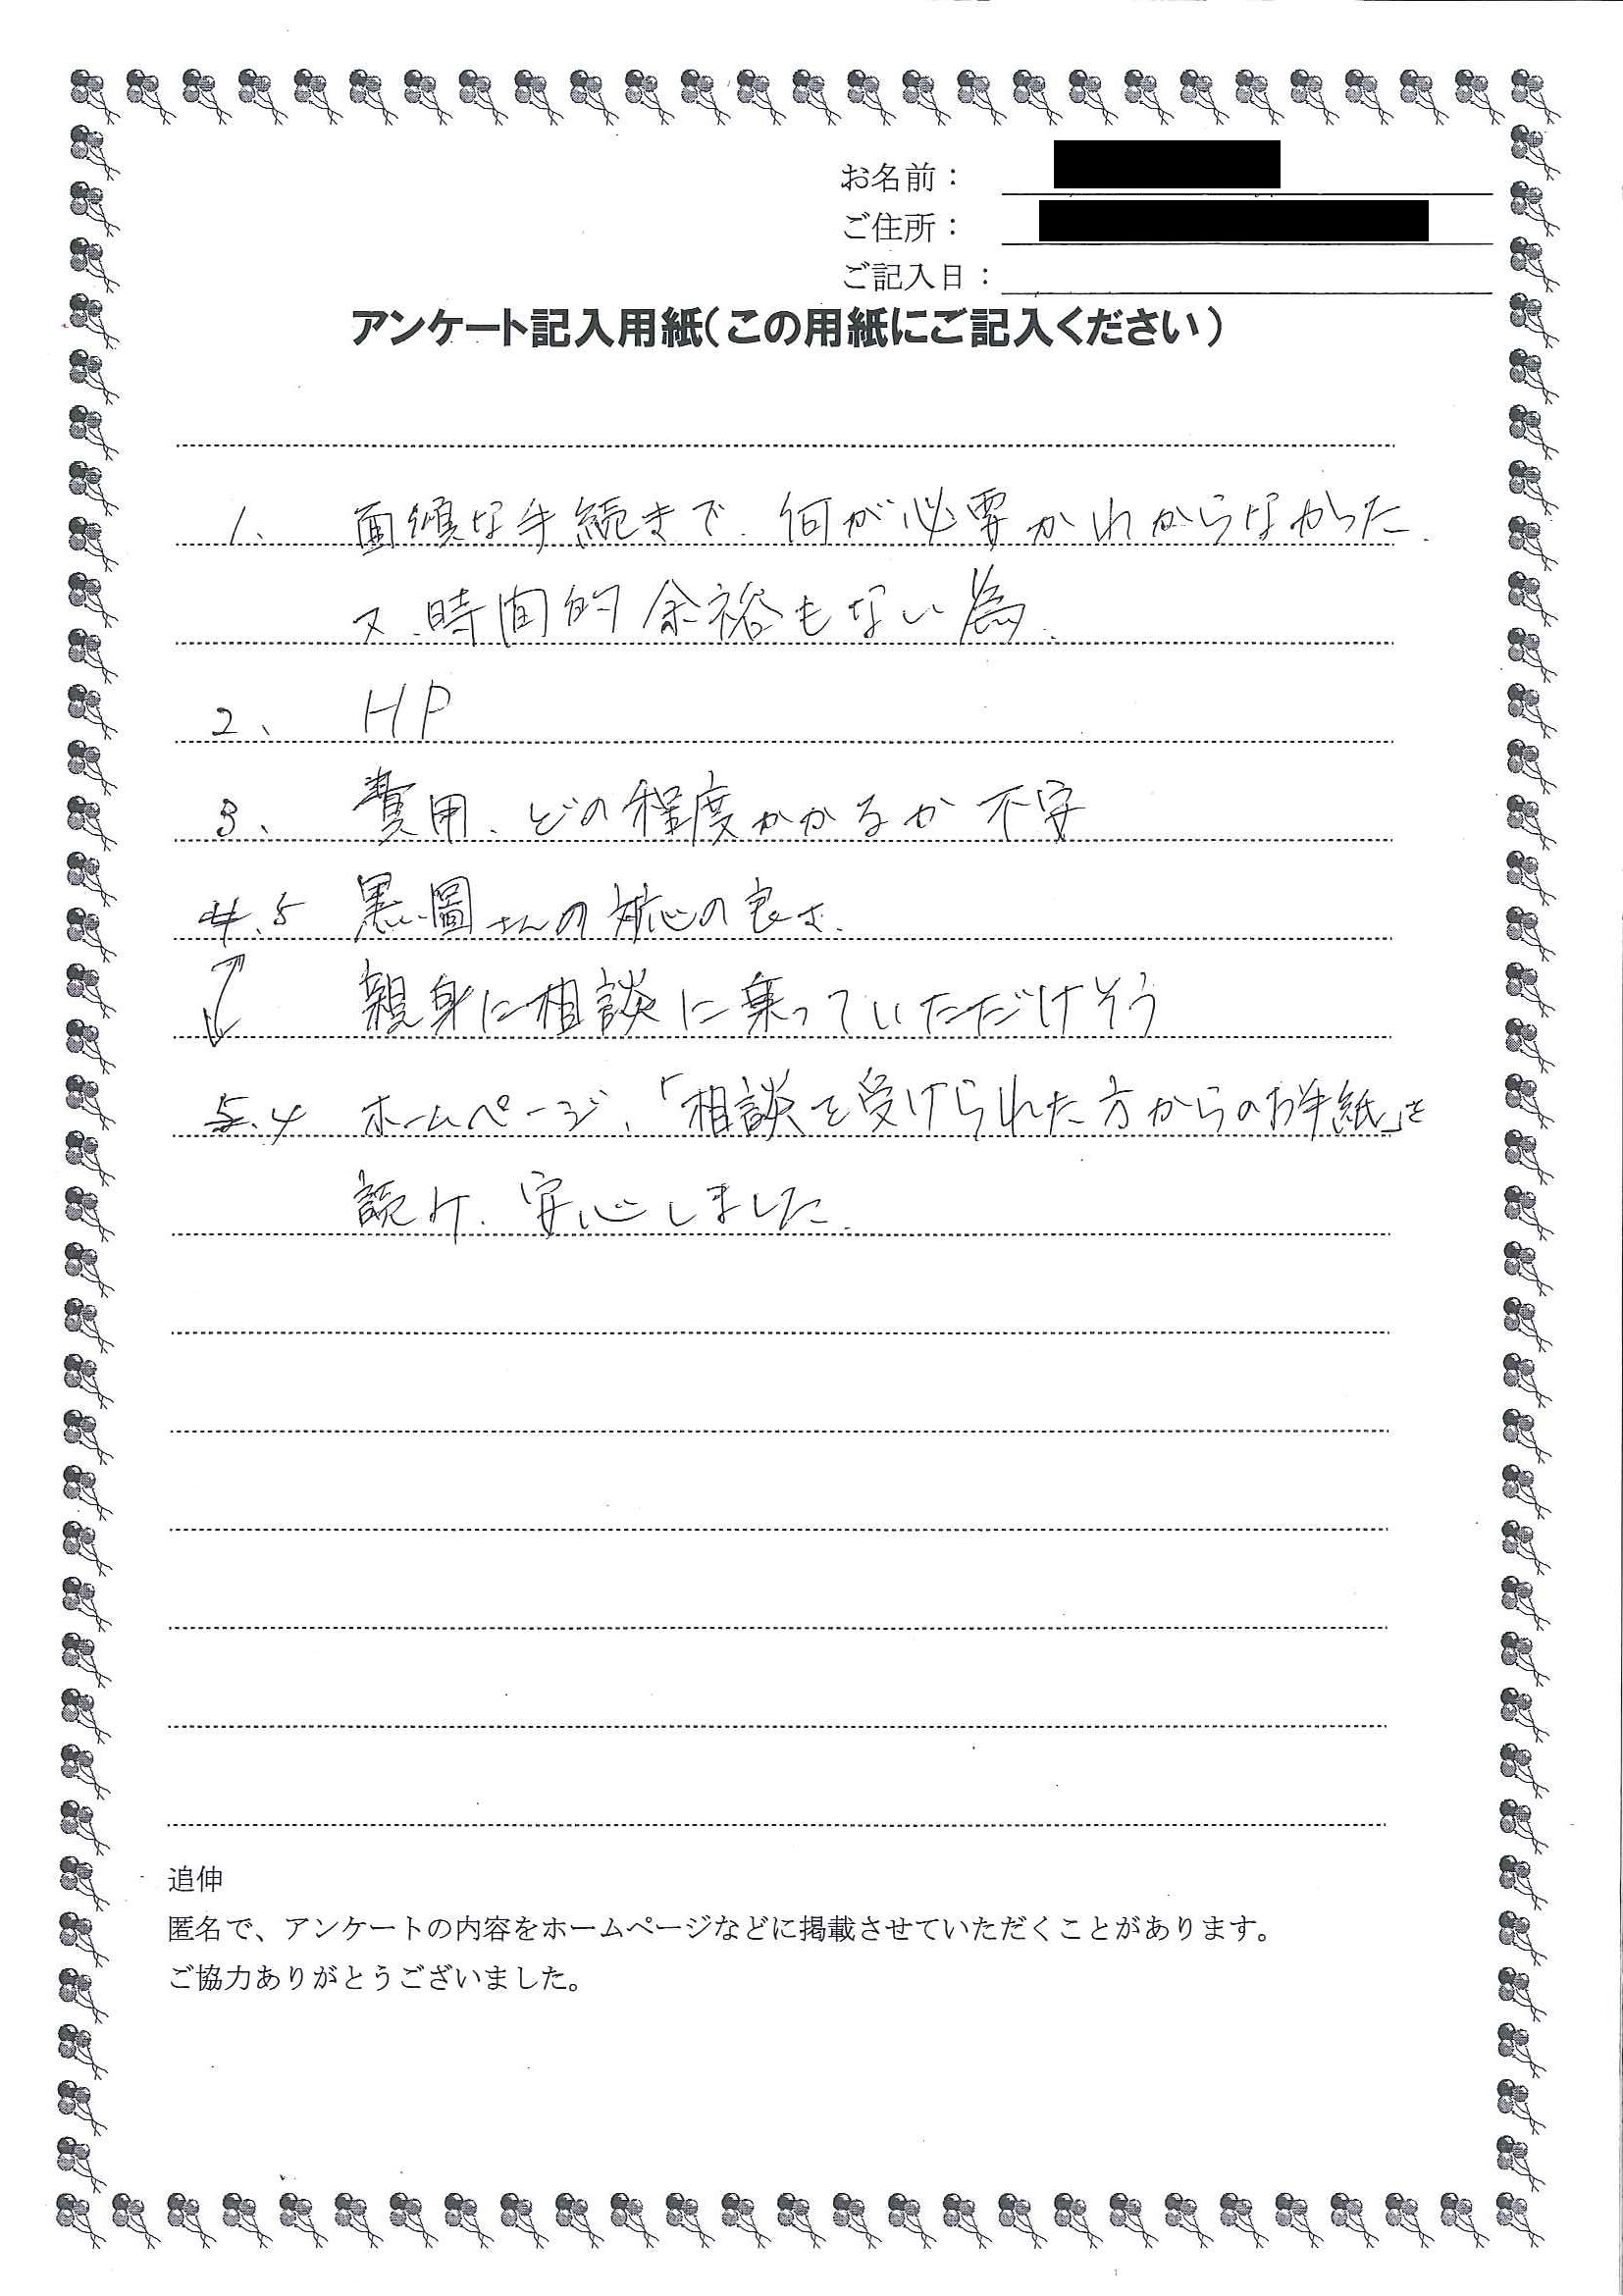 お名前：
ご住所：
ご記入日：
アンケート記入用紙（この用紙にご記入ください）
1、 面倒な手続きで、何が必要かわからなかった。
又、時間的余裕もない為。
2、 HP
3、 費用、どの程度かかるか不安
4.5 黒圖さんの対応の良さ。
親身に相談に乗っていただけそう
5.4 ホームページ、「相談を受けられた方からのお手紙」を
読み、安心しました。
追伸
匿名で、アンケートの内容をホームページなどに掲載させていただくことがあります。
ご協力ありがとうございました。